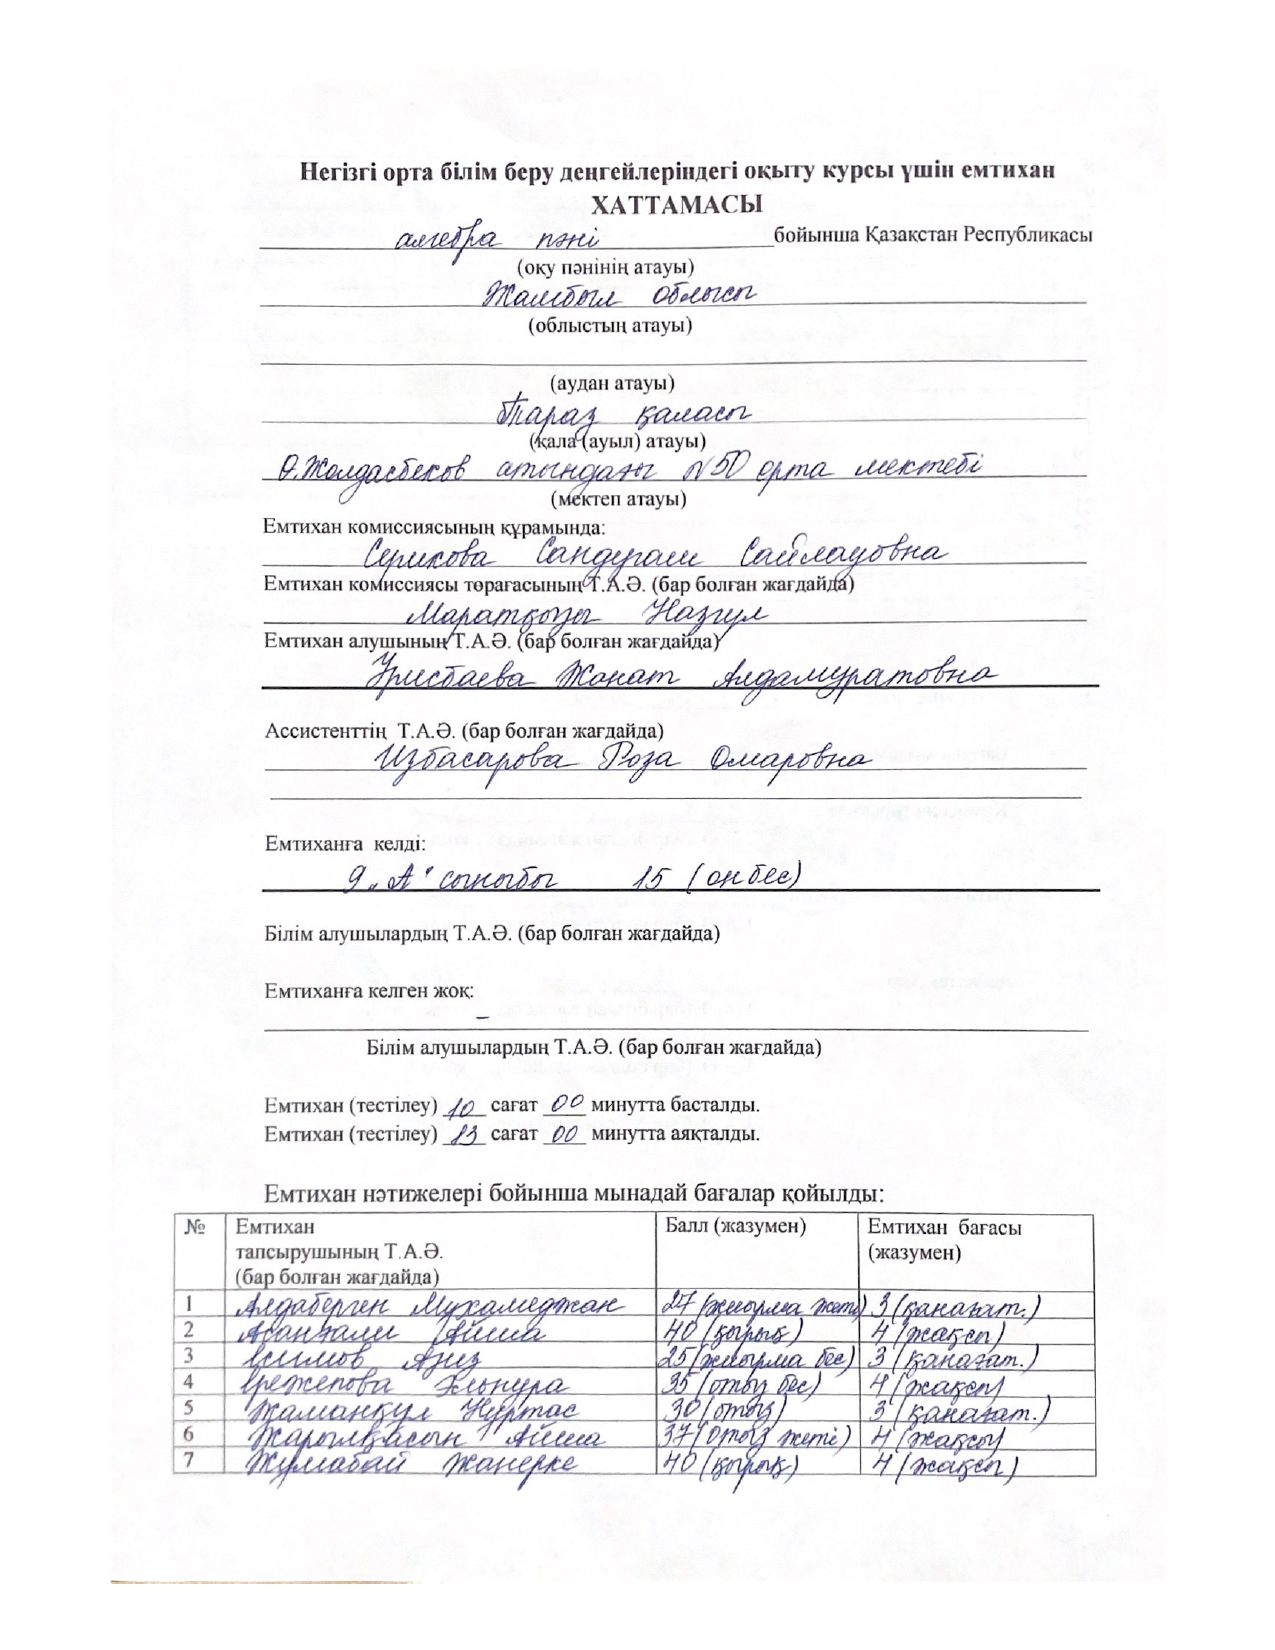 Негізгі орта білім беру деңгейлеріндегі оқыту курсы үшін емтихан
ХАТТАМАСЫ
алгебра пәні бойынша Қазақстан Республикасы
(оқу пәнінің атауы)
Жамбыл облысы
(облыстың атауы)
(аудан атауы)
Тараз қаласы
(қала (ауыл) атауы)
Ө.Жолдасбеков атындағы №50 орта мектебі
(мектеп атауы)
Емтихан комиссиясының құрамында:
Серикова Сандуғаш Сайлауовна
Емтихан комиссиясы төрағасының Т.А.Ә. (бар болған жағдайда)
Маратқызы Назгул
Емтихан алушының Т.А.Ә. (бар болған жағдайда)
Урисбаева Жанат Алдамуратовна
Ассистенттің Т.А.Ә. (бар болған жағдайда)
Избасарова Роза Омаровна
Емтиханға келді:
9 „А" сыныбы 15 (он бес)
Білім алушылардың Т.А.Ә. (бар болған жағдайда)
Емтиханға келген жоқ:
–
Білім алушылардың Т.А.Ә. (бар болған жағдайда)
Емтихан (тестілеу) 10 сағат 00 минутта басталды.
Емтихан (тестілеу) 13 сағат 00 минутта аяқталды.
Емтихан нәтижелері бойынша мынадай бағалар қойылды:
№ Емтихан тапсырушының Т.А.Ә. (бар болған жағдайда) Балл (жазумен) Емтихан бағасы (жазумен)
1 Алдаберген Мухамеджан 27 (жиырма жеті) 3 (қанағат.)
2 Асанғали Айша 40 (қырық) 4 (жақсы)
3 Асимов Азиз 25 (жиырма бес) 3 (қанағат.)
4 Ережепова Элынура 35 (отыз бес) 4 (жақсы)
5 Жаманқұл Нұртас 30 (отыз) 3 (қанағат.)
6 Жарылқасын Айша 37 (отыз жеті) 4 (жақсы)
7 Жұмабай Жанерке 40 (қырық) 4 (жақсы)